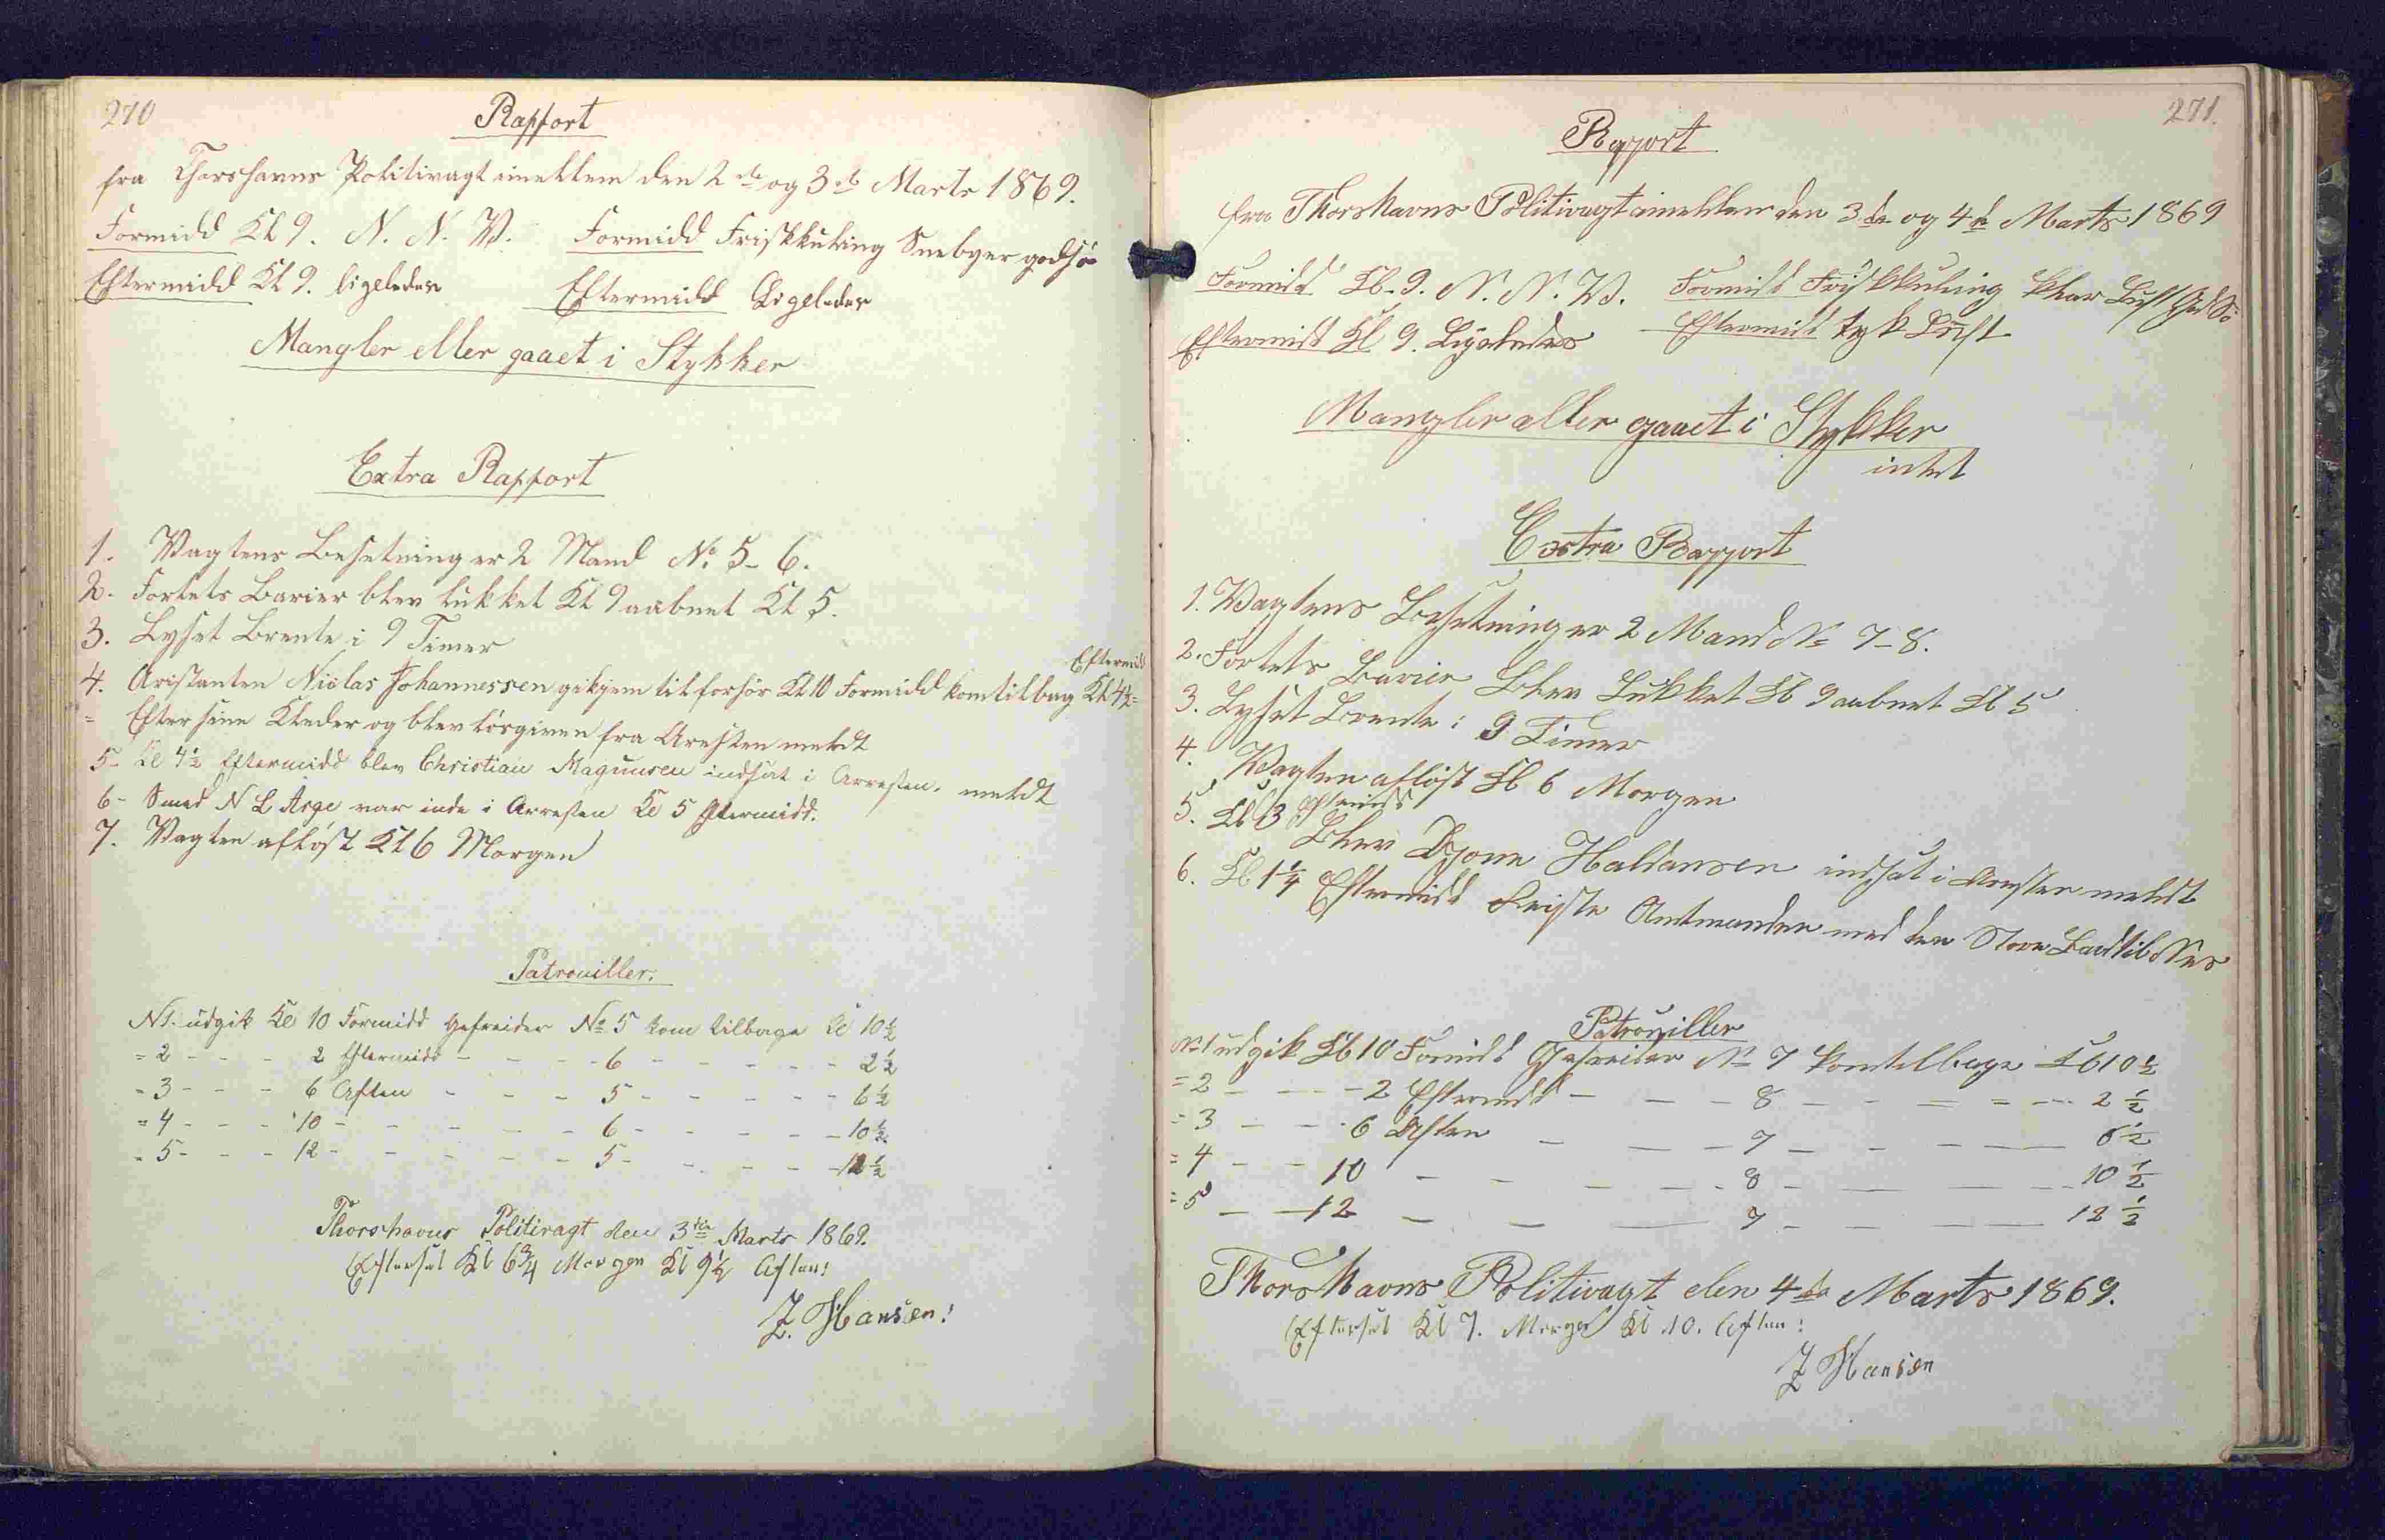 270
Rapport
fra Thorshavns Politivagt imellem den 2de og 3de Marts 1869.
Formidd Kl 9. N. N. V. Formidd Friskkuling Snebyer godsö
Eftermidd Kl 9. ligeledes Eftermidd Ligeledes
Mangler eller gaaet i Stykker
Extra Rapport
1. Vagtens Besetning er 2 Mand No 5-6.
2. Fortets Barier blev lukket Kl 9 aabnet Kl 5.
3. Lyset Brente i 9 Timer
Eftermidd
4. Aristanten Niclas Johannessen gik hjem til forhör Kl 10 Formidd kom tilbag Kl 4½
= Efter sine Kleder og blev lösgiven fra Aresten meldt
5- Kl 4½ Eftermidd blev Christian Magnusen indsat i Arresten. meldt
6- Smed N L Arge var inde i Arresten Kl 5 Eftermidd.
7. Vagten aflöst Kl 6 Morgen
Patrouiller.
N1. udgik Kl 10 Formidd Gefreider No 5 kom tilbage Kl 10½
= 2 - - - 2 Eftermidd - - - 6 - - - - - 2½
- 3 - - - 6 Aften - - - 5 - - - - - 6½
= 4 - - - 10 - - - - - 6 - - - - - 10½
- 5 - - - 12 - - - - - 5 - - - - - 12½
Thorshavns Politivagt den 3de Marts 1869.
Efterset Kl 6¾ Morgen Kl 9½ Aften!
Z. Hansen!
271.
Rapport
fra Thorshavns Politivagt imellem den 3de og 4de Marts 1869
Formidd Kl. 9. N. N. V. Formidd Friskkuling klar Luft God Sö
Eftermidd Kl 9. Ligeledes Eftermidd tyk Luft
Mangler eller gaaet i Stykker
intet
Extra Rapport
1. Vagtens Besetning er 2 Mand No 7-8.
2. Fortets Barier blev Lukket Kl 9 aabnet Kl 5
3. Lyset Brente i 9 Timer
4. Vagten aflöst Kl 6 Morgen
5. Kl 3 Eftermidd
Blev Djone Haldansen indsat i Aresten meldt
6. Kl 1¼ Eftermidd Reiste Amtmanden med den Store Baad til Nes
Patrouiller
No 1 udgik Kl 10 Formidd Gefreider No 7 kom tilbage Kl 10½
= 2 - - - 2 Eftermidd - - - 8 - - - - - 2½
= 3 - - - 6 Aften - - - 7 - - - - 6½
= 4 - - 10 - - - - - 8 - - - - 10½
= 5 - - 12 - - - 7 - - - - 12½
Thorshavns Politivagt den 4de Marts 1869.
Efterset Kl 7. Morgen Kl 10. Aften!
Z Hansen